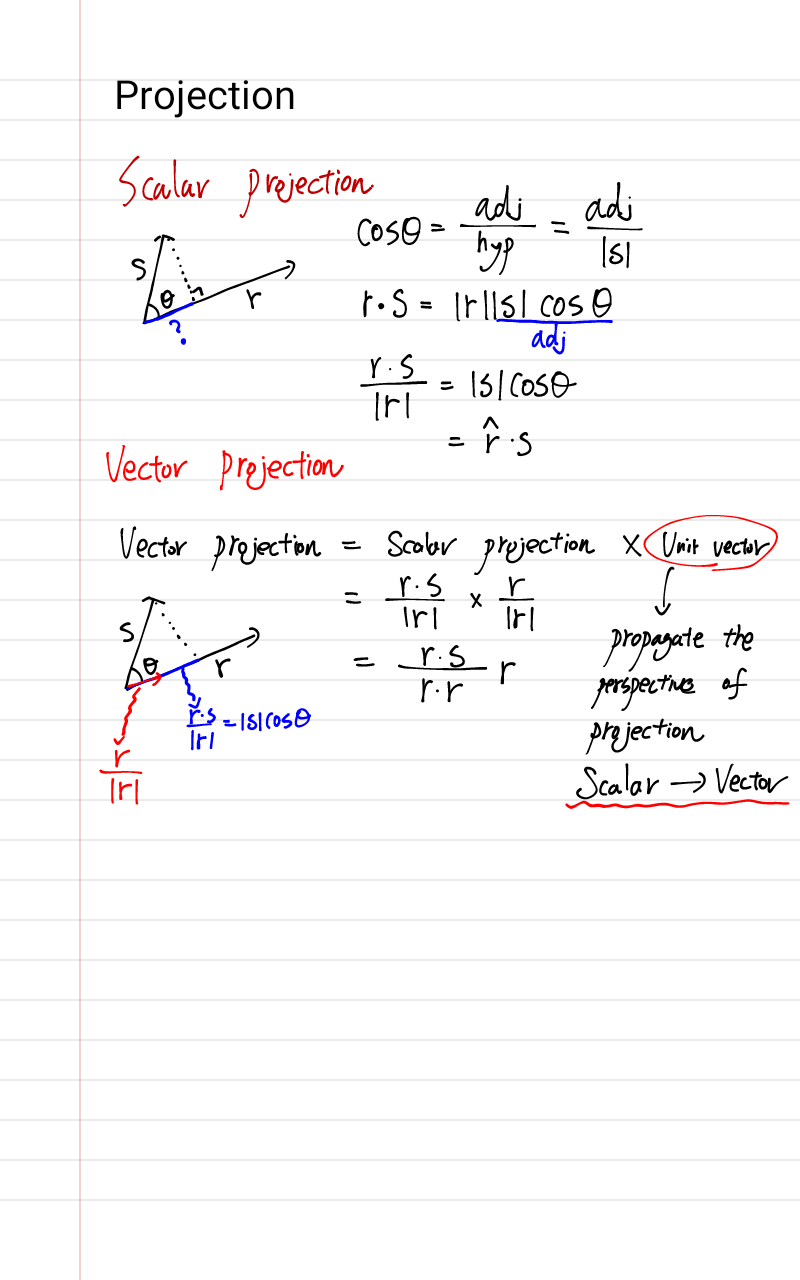 Projection
Scalar projection
cosθ = adj/hyp = adj/|s|
s
θ
r
?
r·s = |r||s| cosθ
adj
r·s/|r| = |s|cosθ
= r̂·s
Vector projection
Vector projection = Scalar projection × Unit vector
= r·s/|r| × r/|r|
= r·s/r·r r
propagate the
perspective of
projection
Scalar → Vector
s
θ
r
r·s/|r| = |s|cosθ
r/|r|